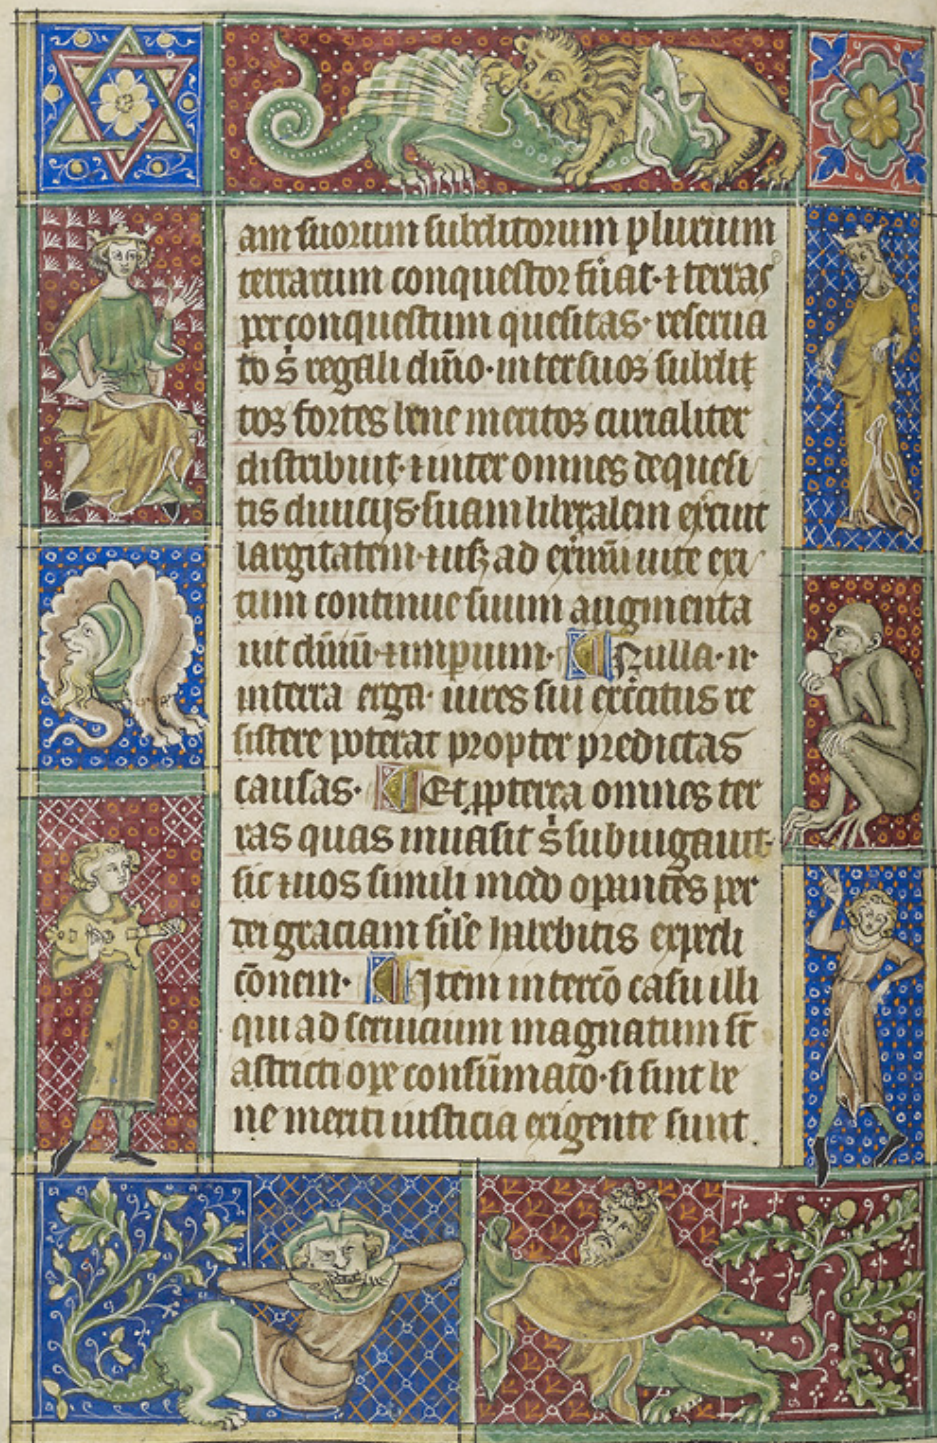 am suorum subditorum plurium
terrarum conquestor fuiat· ⁊ terras
per conquestum quesitas· reserua
to s̄ regali dn̄io· inter suos subdit
tos fortes bene meritos curialiter
distribuit· ⁊ inter omnes de quesi
tis diuicijs· suam liberalem exciuit
largitatem· ⁊ usqꝫ ad exitum uite exi
tum continue suum augmenta
uit dn̄iū· ⁊ imperium· Nulla· n̄·
in terra erga· uires sui exercitus re
sistere poterat propter predictas
causas· Et propterea omnes ter
ras quas inuasit s̄ subiugauit·
sic ⁊ uos simili modo operantes per
dei graciam sil̄e habebitis expedi
c̄onem· Item in terc̄o casu illi
qui ad seruicium magnatum st̄
astricti oꝑe consūmato· si sint be
ne meriti iusticia exigente sunt